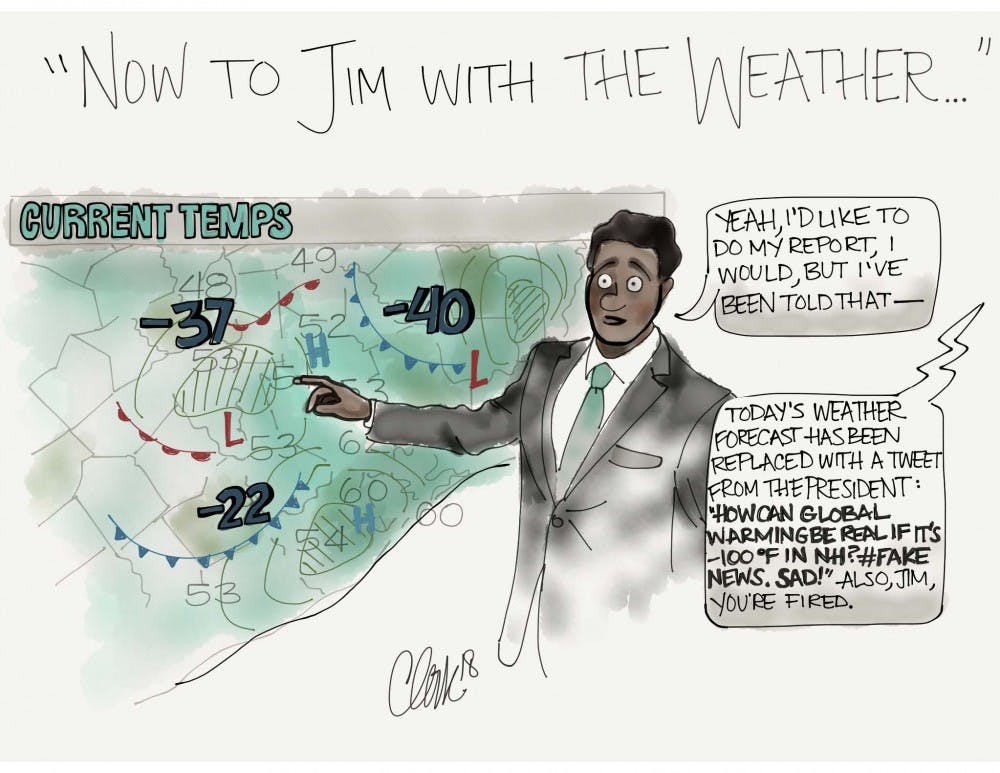 "NOW TO JIM WITH THE WEATHER..."
CURRENT TEMPS
YEAH, I'D LIKE TO
DO MY REPORT, I
WOULD, BUT I'VE
BEEN TOLD THAT—
49
48
-37
-40
52
H
53
L
L
53
TODAY'S WEATHER
FORECAST HAS BEEN
REPLACED WITH A TWEET
FROM THE PRESIDENT:
"HOW CAN GLOBAL
WARMING BE REAL IF IT'S
-100 °F IN NH? #FAKE
NEWS. SAD!" ALSO, JIM,
YOU'RE FIRED.
-22
60
H
60
54
53
Clark '18